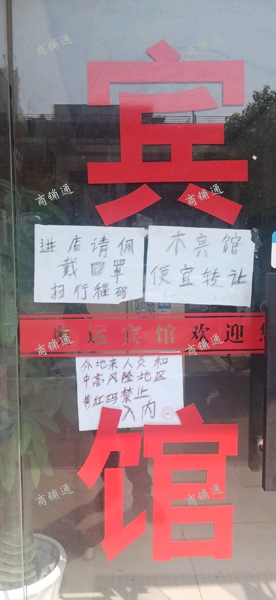 宾
进店请佩
戴口罩
扫行程码
本宾馆
便宜转让
运宾馆欢迎您
外地来人员和
中高风险地区
黄红码禁止
入内
馆
商铺通
商铺通
商铺通
商铺通
商铺通
商铺通
商铺通
商铺通